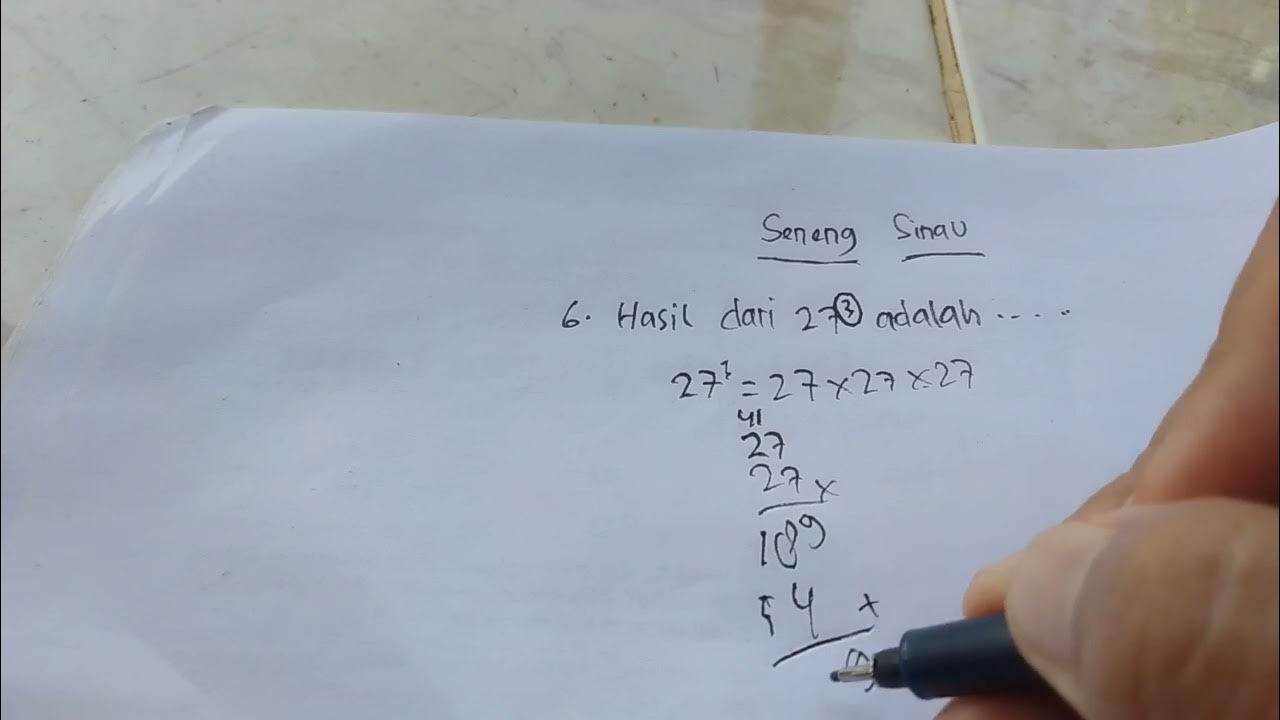 Seneng Sinau
6. Hasil dari 27³ adalah .....
27³ = 27 × 27 × 27
41
27
27 ×
189
54 +
9